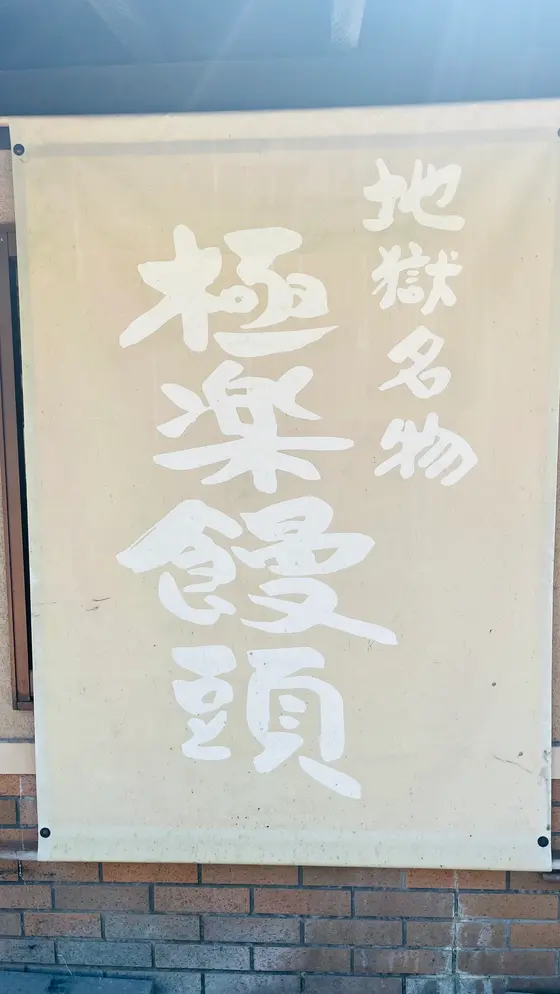 地獄名物
極楽饅頭